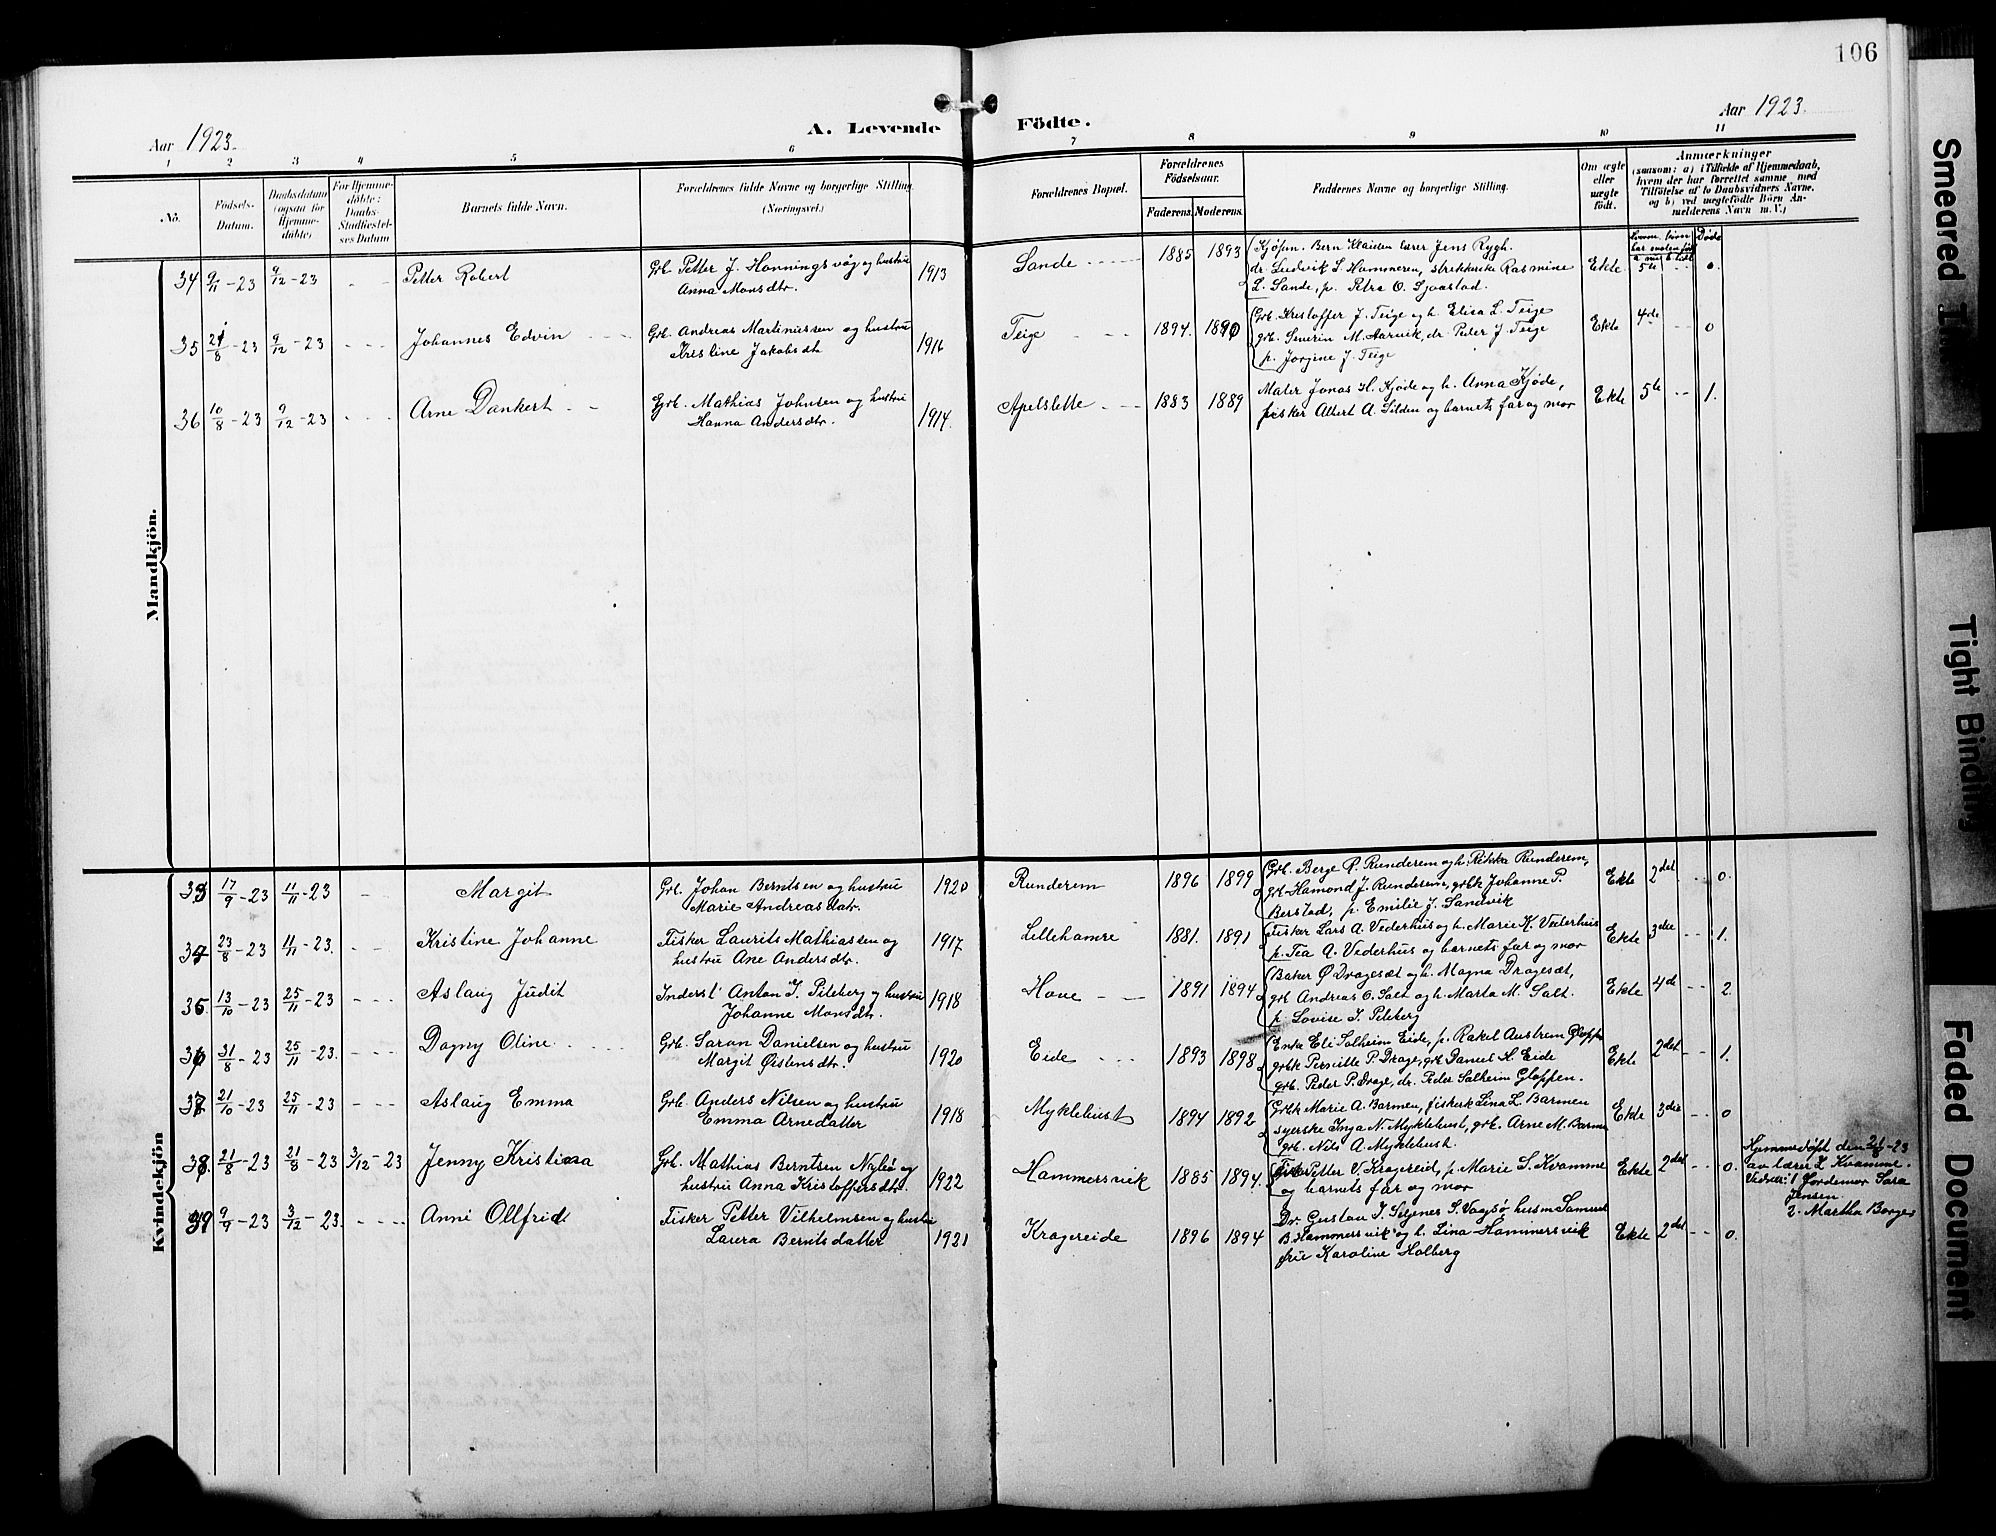 106
Aar 1923.
A. Levende Födte.
Aar 1923.
1 2 3 4 5 6 7 8 9 10 11
No.
Födsels-
Datum.
Daabsdatum
(ogsaa for
Hjemme-
döbte)
For Hjemme-
döbte:
Daabs-
Stadfæstel-
ses Datum
Barnets fulde Navn.
Forældrenes fulde Navne og borgerlige Stilling
(Næringsvei.)
Forældrenes Bopæl.
Forældrenes
Födselsaar.
Faderens. Moderens.
Faddernes Navne og borgerlige Stilling.
Om ægte
eller
uægte
födt.
Anmærkninger
(saasom: a) i Tilfælde af Hjemmedaab,
hvem der har forrettet samme med
Tilföielse af to Daabsvidners Navne,
og b) ved uægtefödte Börn An-
melderens Navn m. V.)
Döde
Mandkjön.
34 9/11-23 9/12-23 - - Petter Robert Grb. Petter J. Honningsvåg og hustru
Anna Monsdtr. 1913 Sande 1885 1893 Kjøpm. Bern Klaiden lærer Jens Rygh.
dr. Ludvik L. Hammeren, strikkerske Rasmine
L. Sande, p. Petra O. Sjaastad. Ekte 5te - - 0.
35 21/8-23 9/12-23 - - - Johannes Edvin Grb. Andreas Martinussen og hustru
Kristine Jakobsdtr 1916 Teige 1894. 1890 Grb. Kristoffer J. Teige og h. Elisa L. Teige
grb. Severin M. Aarvik, dr. Peder J. Teige
p. Jorgine J. Teige Ekte 4de - - 0
36 10/8-23 9/12-23 - - - Arne Dankert Grb. Mathias Johnsen og hustru
Hanna Andersdtr. 1914. Apelsletta 1883 1889 Maler Jonas H. Kjøde og h. Anna Kjøde,
fisker Albert A. Silden og barnets far og mor Ekte 5te - - 1.
Kvindekjön
33 17/9-23 11/11-23 - Margit Grb. Johan Berntsen og hustru
Marie Andreasdatr. 1920 Runderem 1896 1899 Grb. Berge R. Runderem og h. Rikka Runderem,
grb. Hamond J. Runderem, grbk Johanne P.
Berstad, p. Emilie J. Sandvik Ekte 2det - - 0.
34 23/8-23 11/11-23. - - Kristine Johanne Fisker Laurits Mathiassen og
hustru Ane Andersdtr. 1917 Lillehamre 1881. 1891 Fisker Lars A. Vederhus og h. Marie K. Vederhus
p. Tea A. Vederhus og barnets far og mor Ekte 3die - - 1.
35. 13/10-23 25/11-23 - - - Aslaug Judit Inderst Anton J. Pileberg og hustru
Johanne Monsdtr. 1918 Hove 1891 1894 Baker Ø Dragesæt og h. Magna Dragesæt,
grb Andreas O. Salt og h. Marta M. Salt.
p. Lovise J. Pileberg Ekte 4de - - 2.
36 31/8-23 25/11-23. - - - Dagny Oline Grb. Saran Danielsen og hustru
Margit Øistensdtr. 1920 Eide 1893 1898 Enke Eli Solheim Eide, p. Rakel Austrem Gloppen
grbk Pernille P. Drage, grb Daniel S. Eide
grb. Peder P. Drage, dr. Peder Solheim Gloppen. Ekte 2det - - 1.
37 21/10-23 25/11-23 - - - Aslaug Emma Grb. Anders Nilsen og hustru
Emma Arnedatter 1918 Myklebust 1894 1892 Grbk Marie A. Barmen, fiskerk Lina L. Barmen
syerske Inga N. Myklebust, grb. Arne M. Barmen
grb. Nils A Myklebust. Ekte 3die - - 0
38 21/8-23 21/8-23 3/12-23 Jenny Kristina Grb. Mathias Berntsen Nylø og
hustru Anna Kristoffersdtr. 1922 Hammersvik 1885 1894. Fisker Petter V. Kragereid, p. Marie S. Kvamme
og barnets far og mor Ekte 2det - - 0.
Hjemmedøpt den 21/8-23
av lærer L Kvamme.
Vidner: 1 Jordemor Sara
Jensen.
2. Martha Borgen
39 9/9-23 3/12-23. - - - - Anni Ollfrid Fisker Petter Vilhelmsen og hustru
Laura Berntsdatter 1921 Kragereide 1896 1894 Dr. Gustav J. Seljnes S. Vaagsø, husm Samuel
B. Hammersvik og h. Lina Hammersvik
frue Karoline Holberg Ekte 2det - - 0.
Smeared
Tight Binding
Faded Document